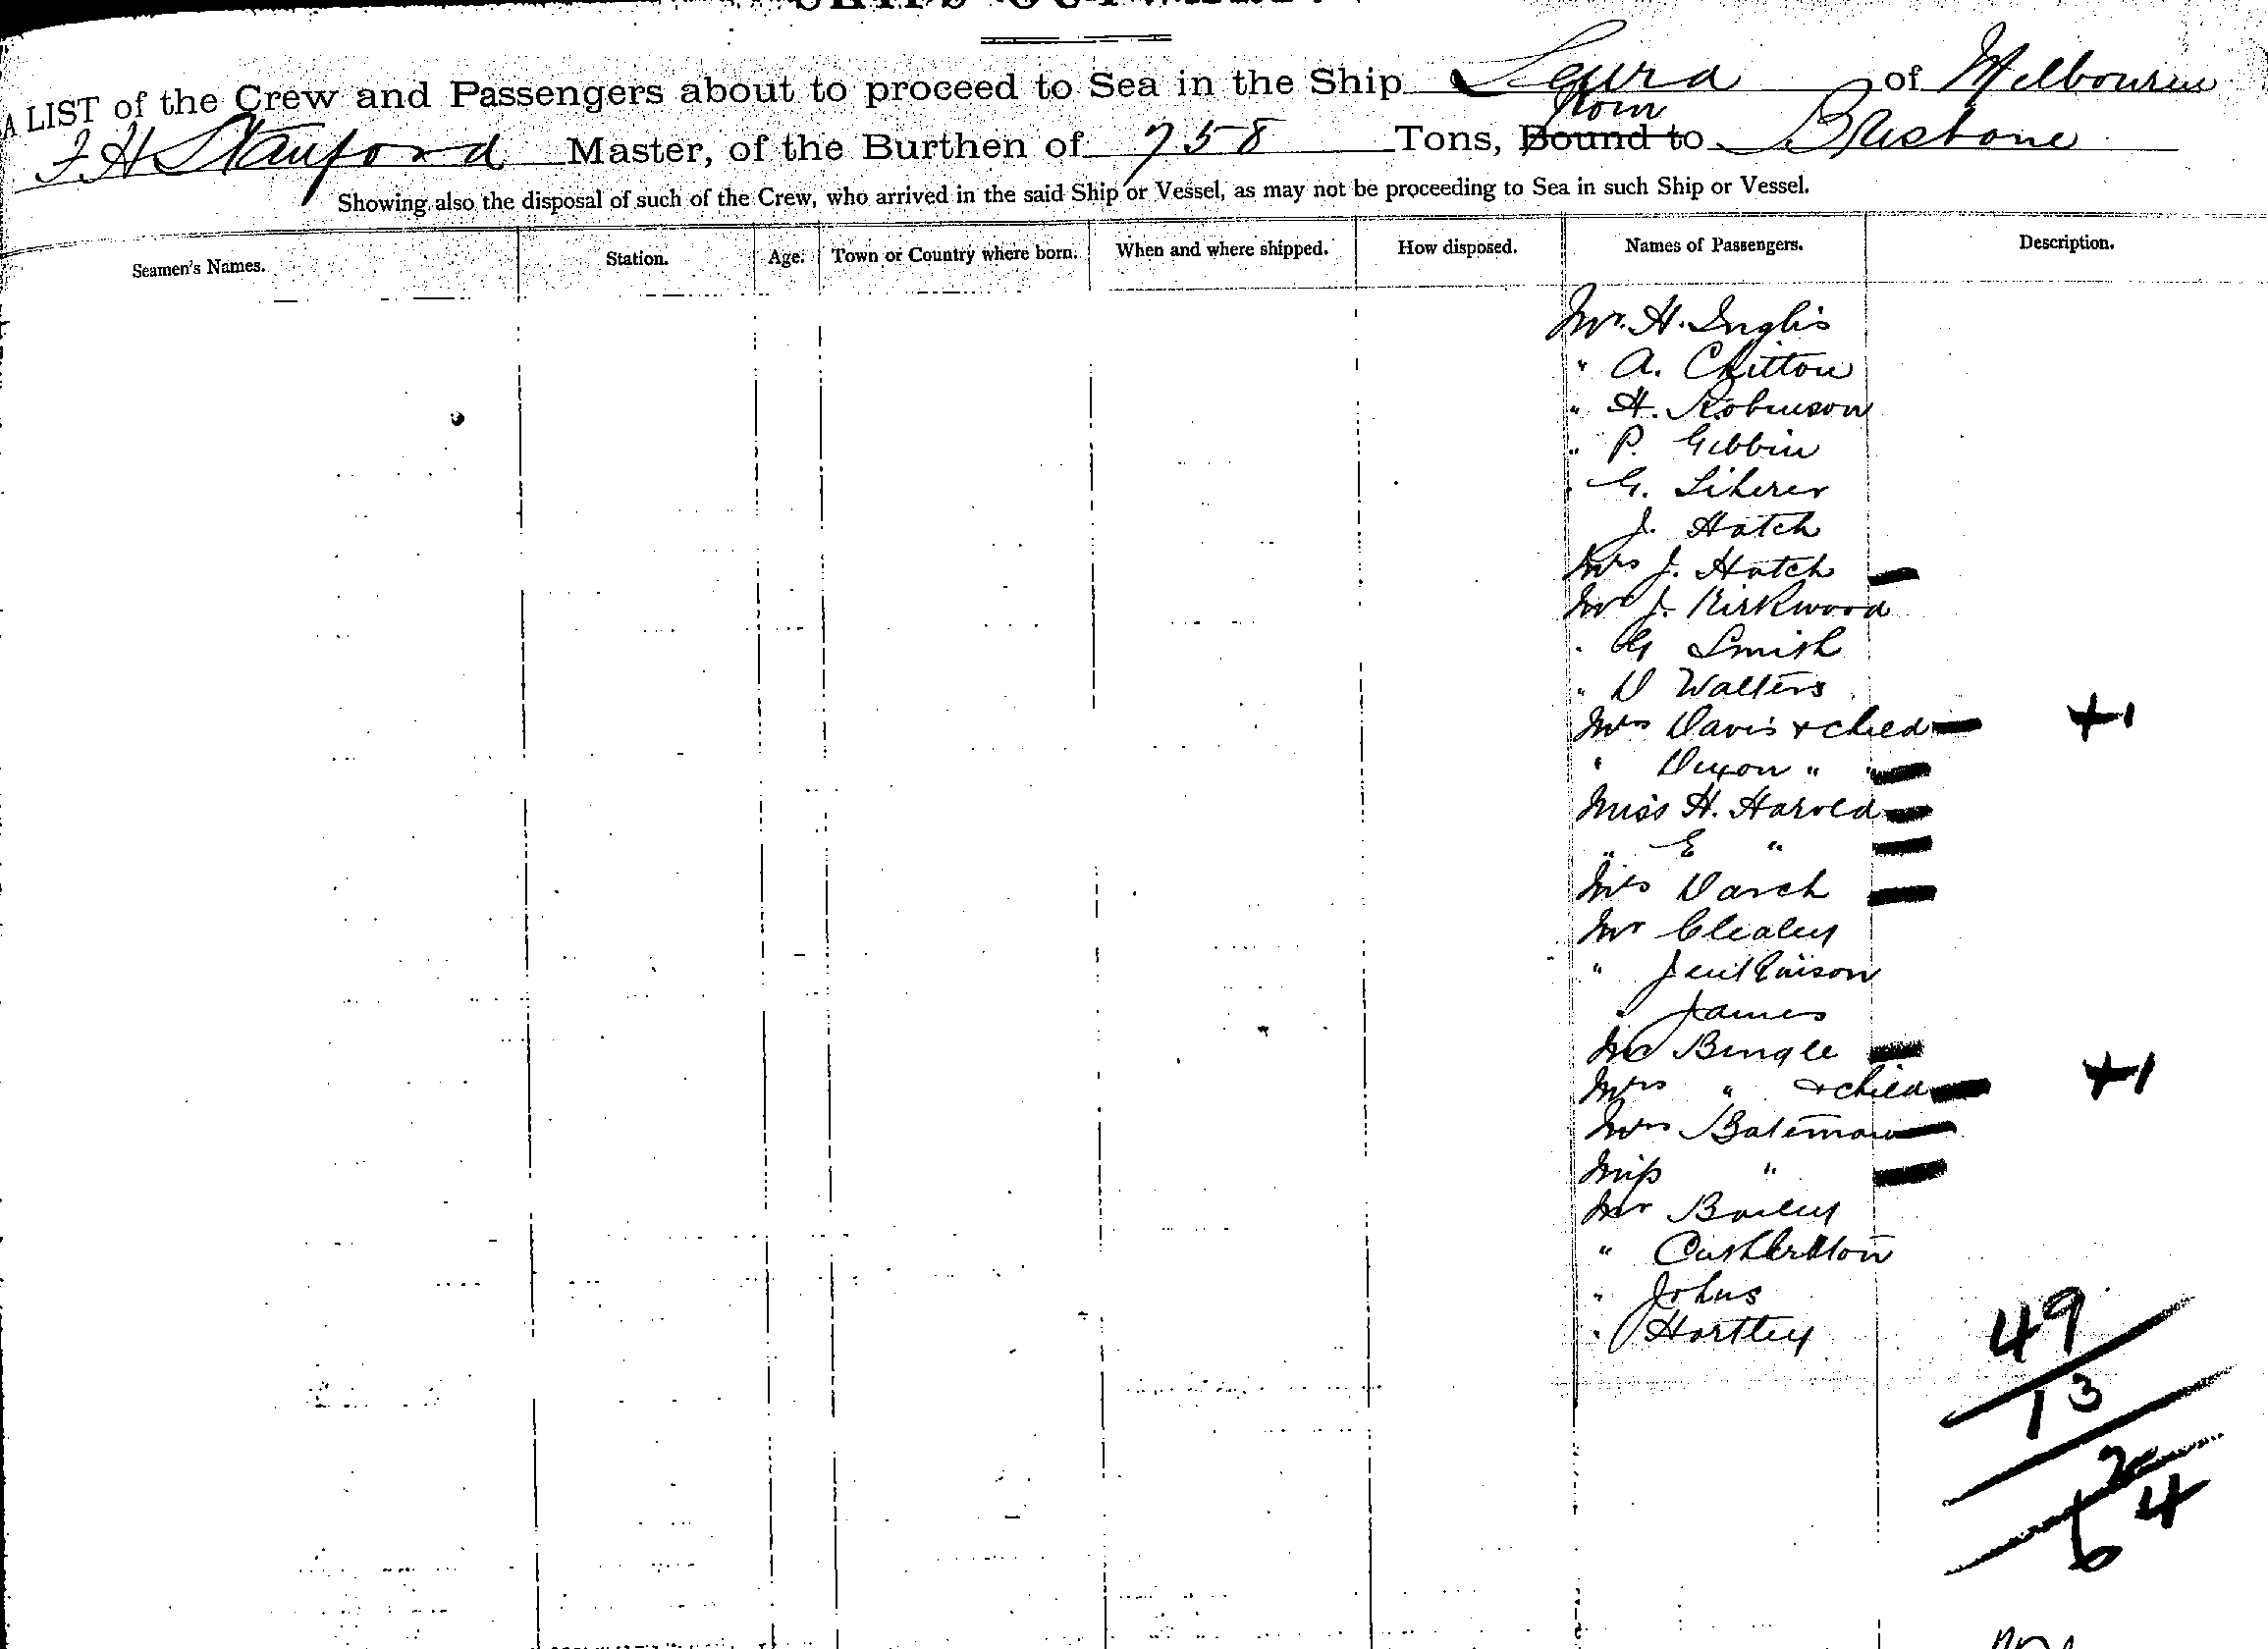 A LIST of the Crew and Passengers about to proceed to Sea in the Ship Leura of Melbourne
F H Stanford Master, of the Burthen of 758 Tons, Bound to from Brisbane
Showing also the disposal of such of the Crew, who arrived in the said Ship or Vessel, as may not be proceeding to Sea in such Ship or Vessel.
Seamen's Names. Station. Age. Town or Country where born. When and where shipped. How disposed. Names of Passengers. Description.
Mr. H. Inglis
" A. Chitton
" H. Robinson
" P. Gibbin
" G. Liherer
J. Hatch
Mrs J. Hatch
Mr J. Kirkwood
" G Smith
" D Walters
Mrs Davis + child +1
" Dixon " "
Miss H. Harold
" E "
Mrs Darch
Mr Clealey
" Jenkinson
" James
Mr Bingle
Mrs " + child +1
Mrs Bateman
Miss "
Mr Bailey
" Cuthbertson
" Johns
" Hartley
49
13
2
64